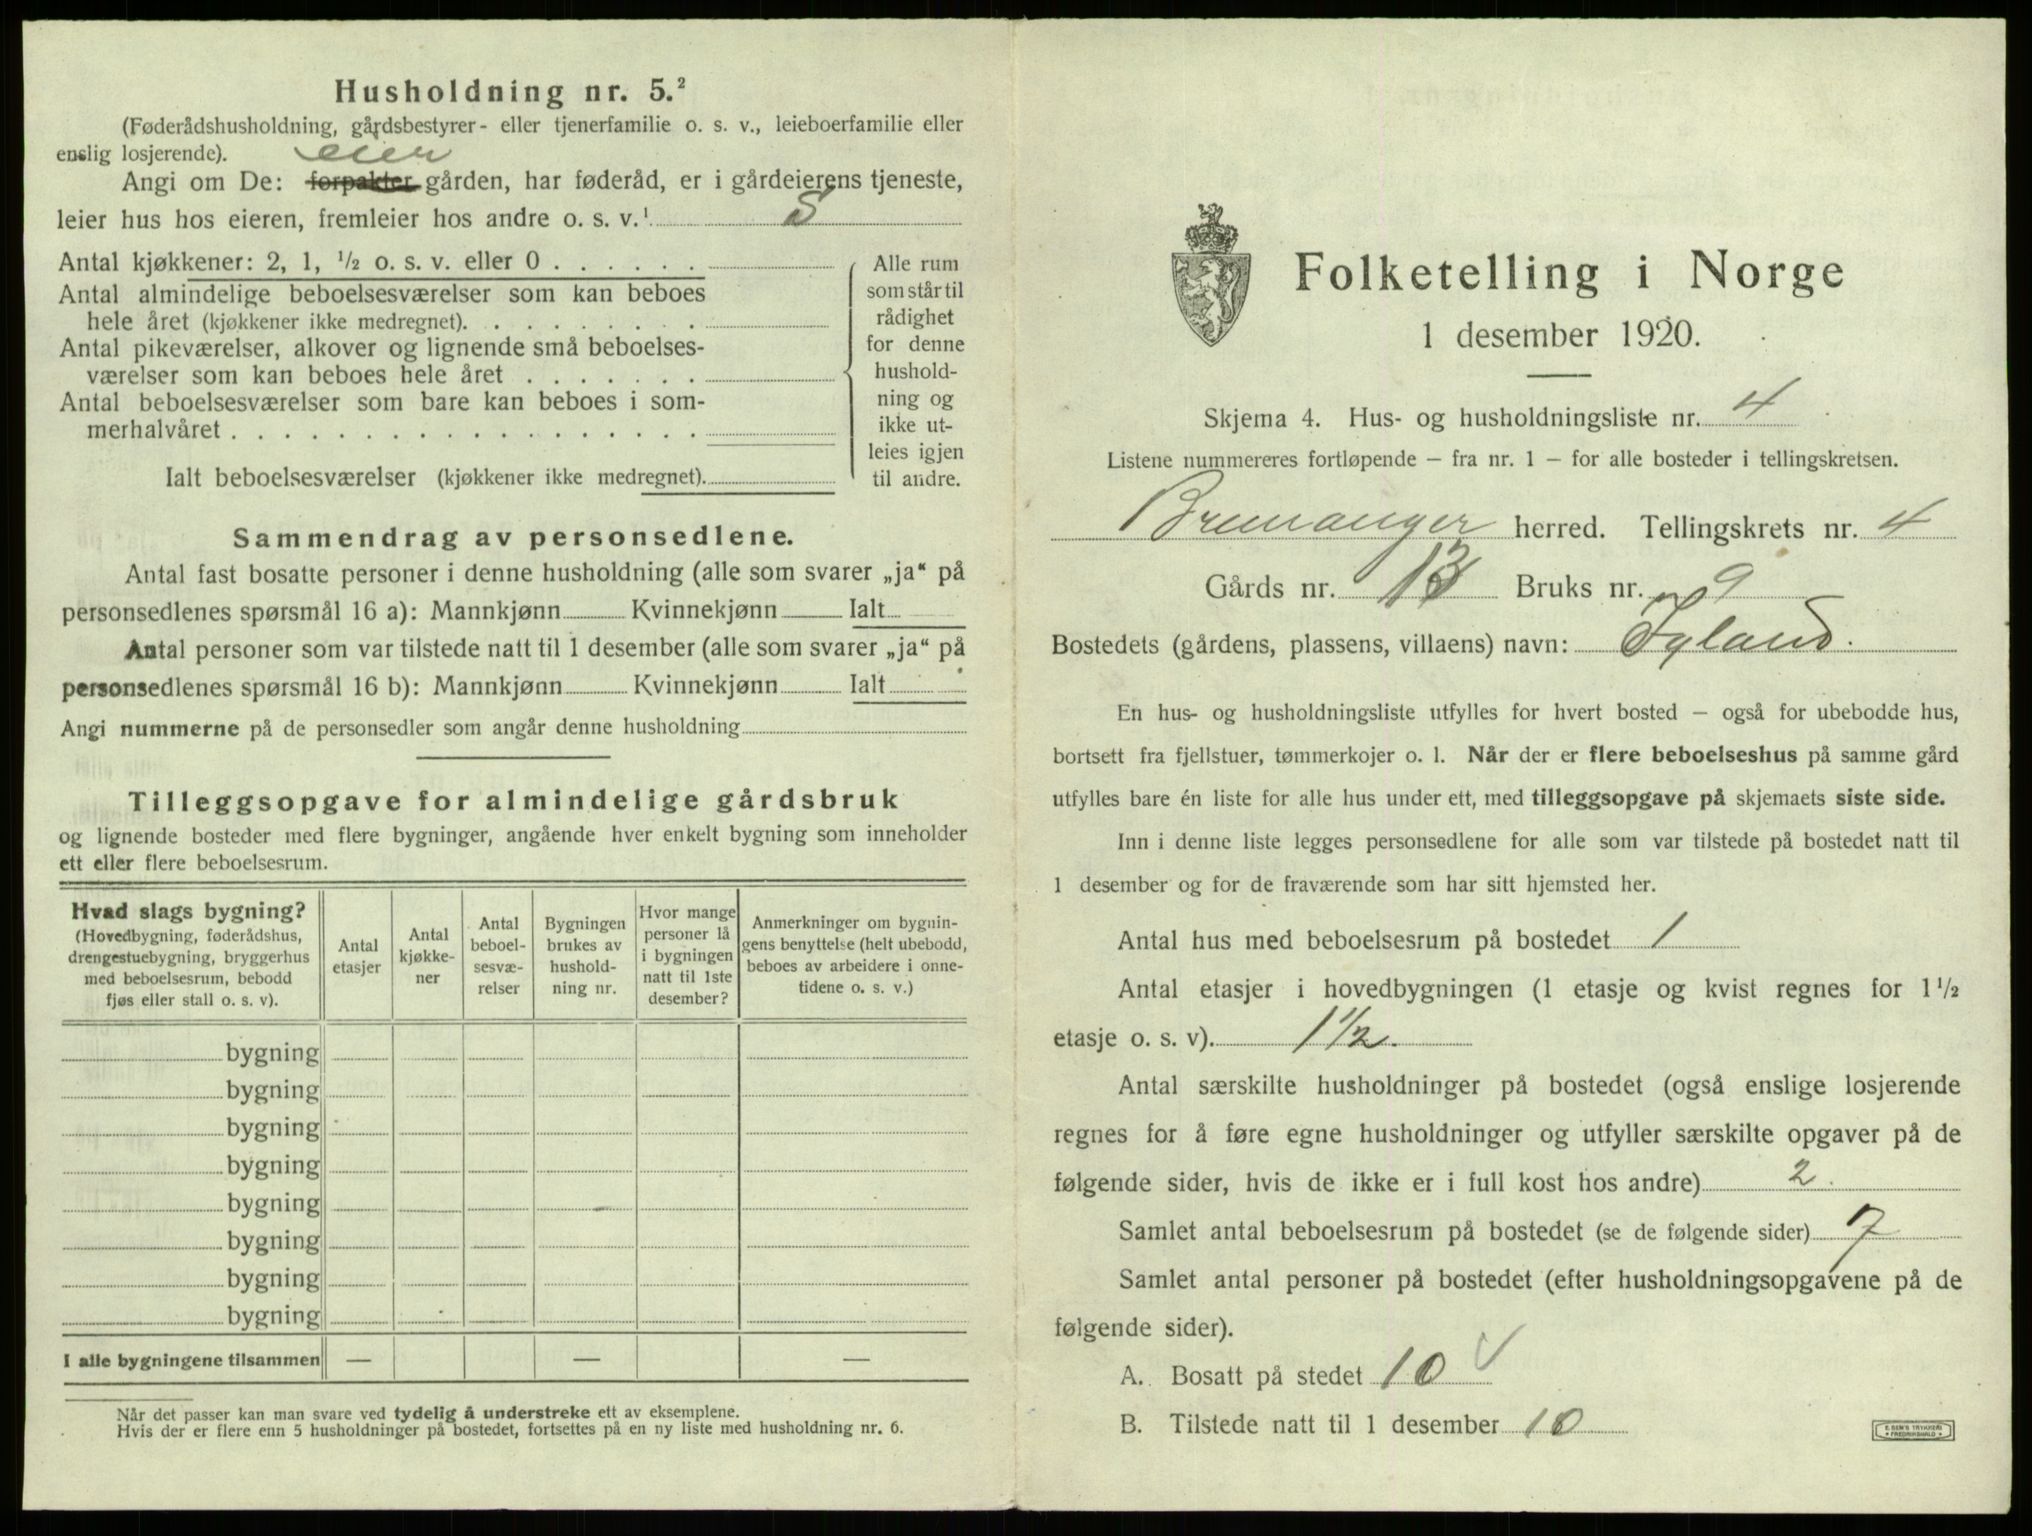 Husholdning nr. 5.²
(Føderådshusholdning, gårdsbestyrer- eller tjenerfamilie o. s. v., leieboerfamilie eller
enslig losjerende).
eier
Angi om De: forpakter gården, har føderåd, er i gårdeierens tjeneste,
leier hus hos eieren, fremleier hos andre o. s. v.¹ S
Antal kjøkkener: 2, 1, ½ o. s. v. eller 0 . . . . . .
Antal almindelige beboelsesværelser som kan beboes
hele året (kjøkkener ikke medregnet). . . . . . . . .
Antal pikeværelser, alkover og lignende små beboelses-
værelser som kan beboes hele året . . . . . . .
Antal beboelsesværelser som bare kan beboes i som-
merhalvåret . . . . . . . . . . . . . . . . . .
Ialt beboelsesværelser (kjøkkener ikke medregnet).
Alle rum
som står til
rådighet
for denne
hushold-
ning og
ikke ut-
leies igjen
til andre.
Sammendrag av personsedlene.
Antal fast bosatte personer i denne husholdning (alle som svarer „ja“ på
personsedlenes spørsmål 16 a): Mannkjønn Kvinnekjønn Ialt
Antal personer som var tilstede natt til 1 desember (alle som svarer „ja“ på
personsedlenes spørsmål 16 b): Mannkjønn Kvinnekjønn Ialt
Angi nummerne på de personsedler som angår denne husholdning
Tilleggsopgave for almindelige gårdsbruk
og lignende bosteder med flere bygninger, angående hver enkelt bygning som inneholder
ett eller flere beboelsesrum.
Hvad slags bygning?
(Hovedbygning, føderådshus,
drengestuebygning, bryggerhus
med beboelsesrum, bebodd
fjøs eller stall o. s. v).
Antal
etasjer
Antal
kjøkke-
ner
Antal
beboel-
sesvæ-
relser
Bygningen
brukes av
hushold-
ning nr.
Hvor mange
personer lå
i bygningen
natt til 1ste
desember?
Anmerkninger om bygnin-
gens benyttelse (helt ubebodd,
beboes av arbeidere i onne-
tidene o. s. v.)
bygning
bygning
bygning
bygning
bygning
bygning
bygning
bygning
I alle bygningene tilsammen — — —
Når det passer kan man svare ved tydelig å understreke ett av eksemplene.
Hvis der er flere enn 5 husholdninger på bostedet, fortsettes på en ny liste med husholdning nr. 6.
Folketelling i Norge
1 desember 1920.
Skjema 4. Hus- og husholdningsliste nr. 4
Listene nummereres fortløpende — fra nr. 1 — for alle bosteder i tellingskretsen.
Bremanger herred. Tellingskrets nr. 4
Gårds nr. 13 Bruks nr. 9
Bostedets (gårdens, plassens, villaens) navn: Igland.
En hus- og husholdningsliste utfylles for hvert bosted — også for ubebodde hus,
bortsett fra fjellstuer, tømmerkojer o. l. Når der er flere beboelseshus på samme gård
utfylles bare én liste for alle hus under ett, med tilleggsopgave på skjemaets siste side.
Inn i denne liste legges personsedlene for alle som var tilstede på bostedet natt til
1 desember og for de fraværende som har sitt hjemsted her.
Antal hus med beboelsesrum på bostedet 1
Antal etasjer i hovedbygningen (1 etasje og kvist regnes for 1½
etasje o. s. v). 1½.
Antal særskilte husholdninger på bostedet (også enslige losjerende
regnes for å føre egne husholdninger og utfyller særskilte opgaver på de
følgende sider, hvis de ikke er i full kost hos andre) 2.
Samlet antal beboelsesrum på bostedet (se de følgende sider) 7
Samlet antal personer på bostedet (efter husholdningsopgavene på de
følgende sider).
A. Bosatt på stedet 10 ✓
B. Tilstede natt til 1 desember 10
E. SEM'S TRYKKERI
FREDRIKSHALD